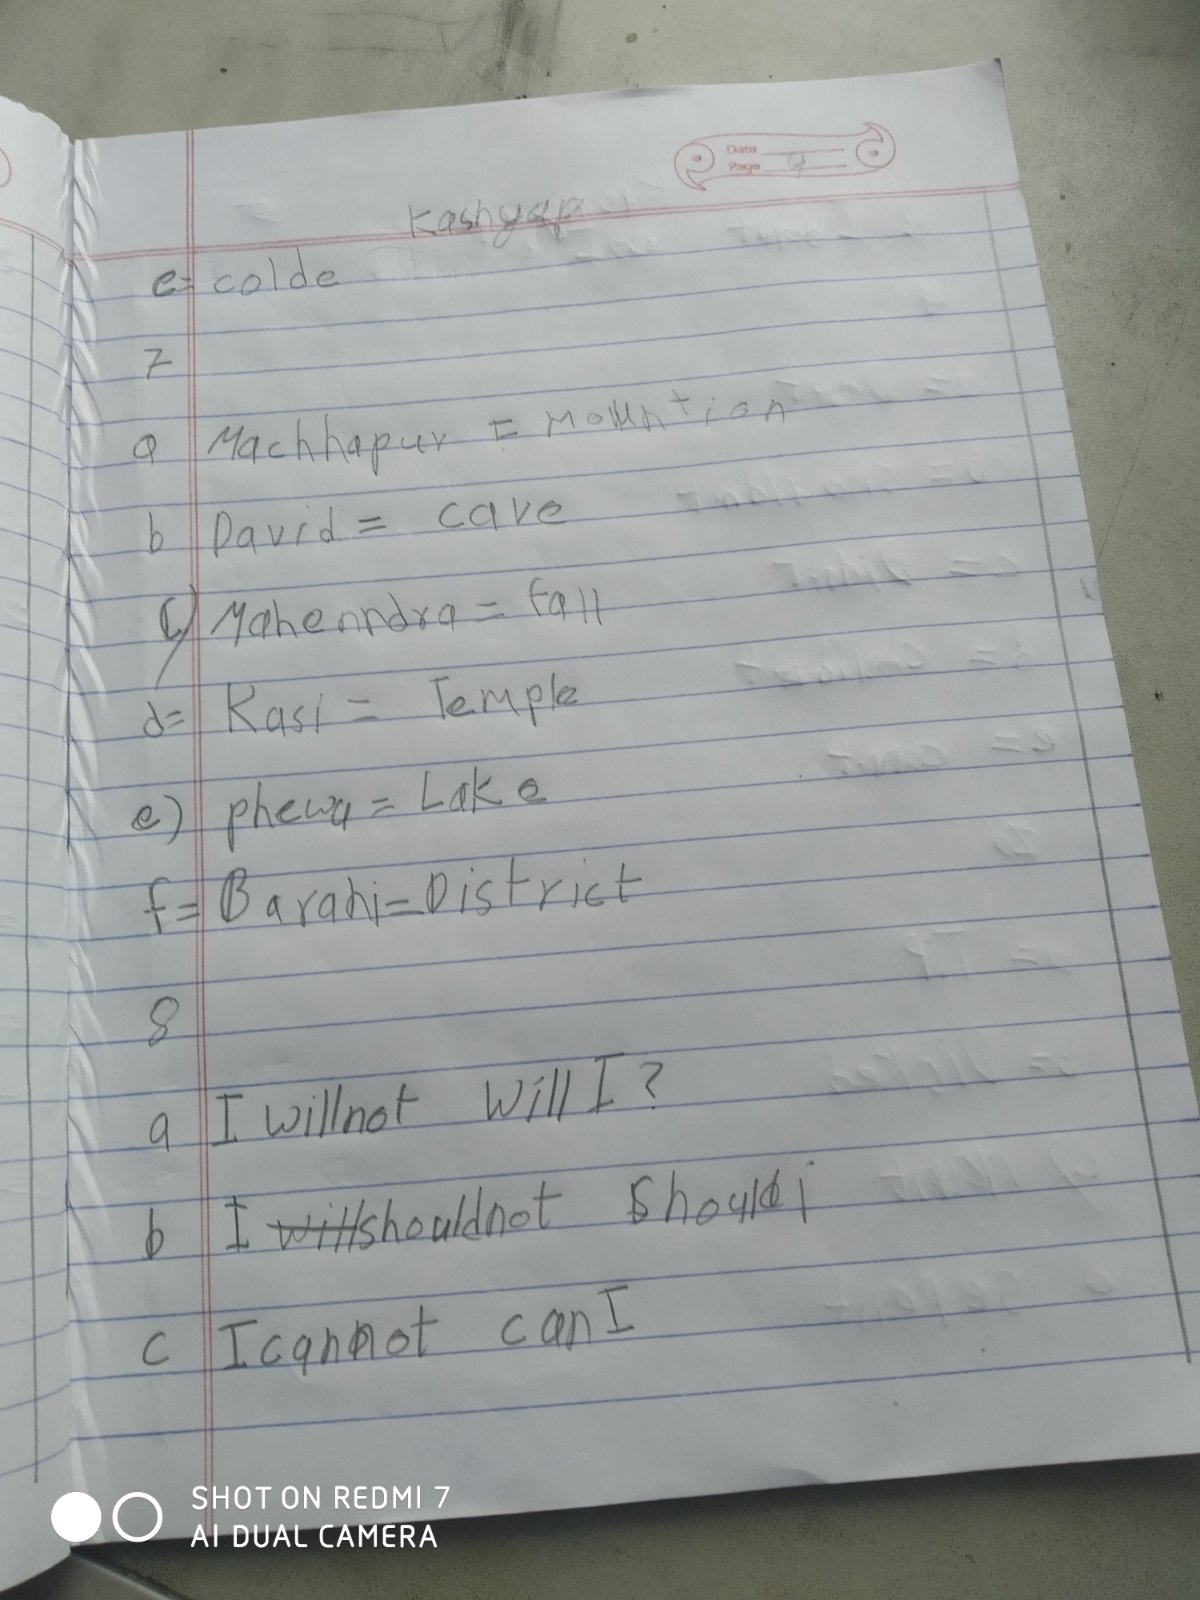 Date
Page 9
Kashyap
e= colde
7
a Machhapur = Mountion
b David = cave
c) Mahenndra = fall
d= Kasi = Temple
e) phewa = Lake
f= Barahi = District
8
a I willnot Will I?
b I will shouldnot Should i
c I cannot can I
SHOT ON REDMI 7
AI DUAL CAMERA